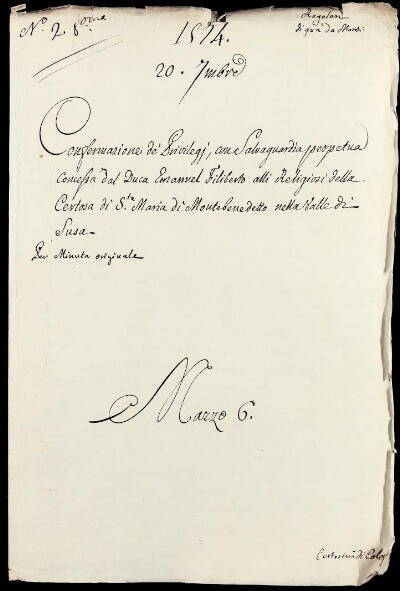 N.º 2. 
1574.
Regolari
di quà da Monti
20. 7mbre
Confermazione de' Privilegj, con Salvaguardia perpetua
concessa dal Duca Emanuel Filiberto alli Religiosi della
Certosa di S.ta Maria di Montebenedetto nella Valle di
Susa
Per Minuta originale
Mazzo 6.
Certosini di